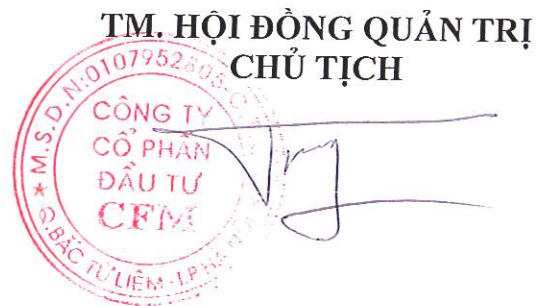 TM. HỘI ĐỒNG QUẢN TRỊ
CHỦ TỊCH
M.S.D.N:0107952806-C.T
CÔNG TY
CỔ PHẦN
ĐẦU TƯ
CFM
Q.BẮC TỪ LIÊM - T.P HÀ NỘI